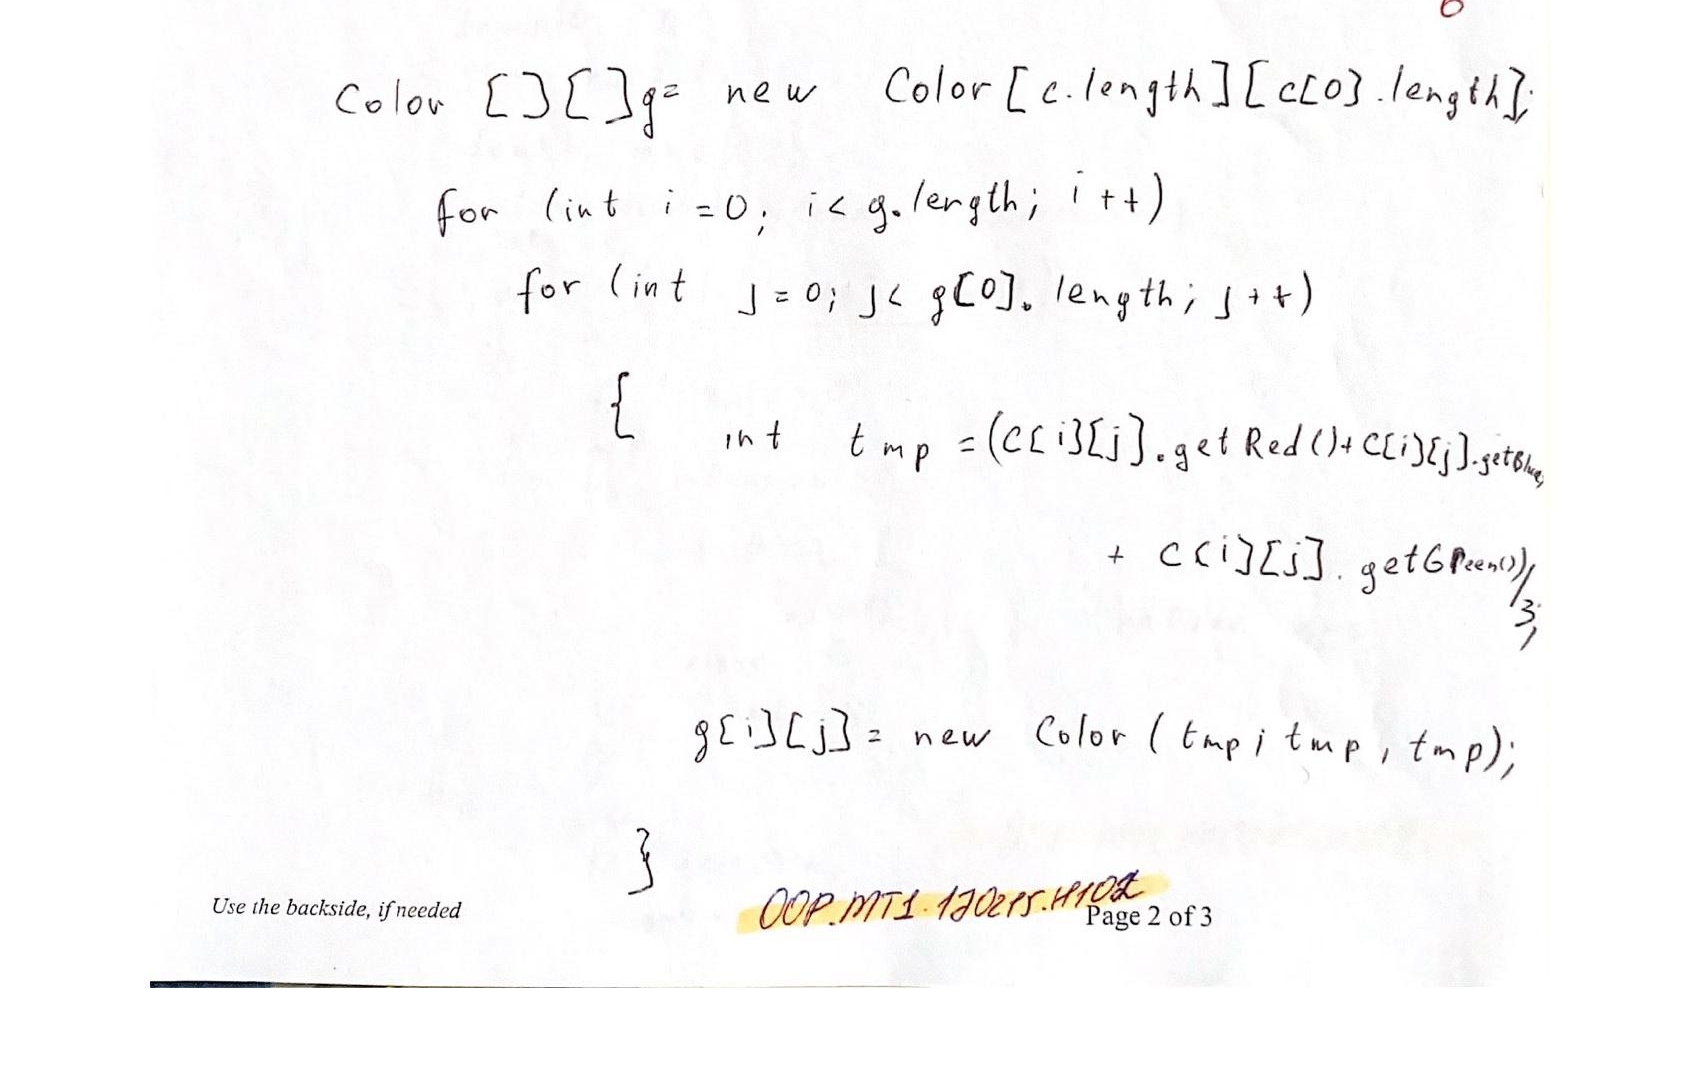 Color [][]g= new Color[c.length][c[0].length];
for (int i=0; i< g.length; i++)
for (int j=0; j< g[0].length; j++)
{ int tmp =(c[i][j].getRed()+c[i][j].getBlue,
+ c[i][j].getGreen())/3;
g[i][j]= new Color (tmp; tmp, tmp);
}
Use the backside, if needed
Page 2 of 3